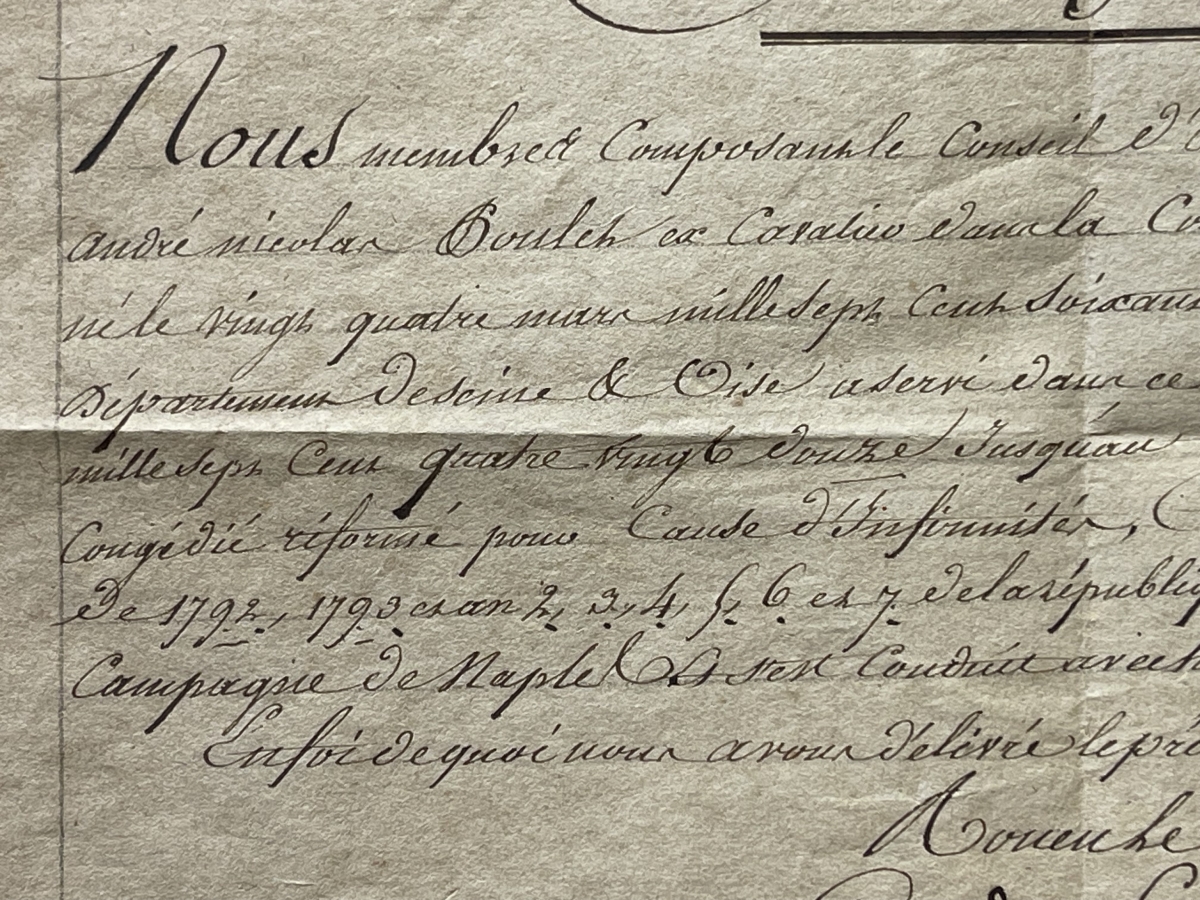 Nous membres Composant le Conseil d'
andré nicolas Boulet ex Cavalier dans la
né le vingt quatre mars mille sept Cent Soixan
Département de seine & Oise a servi dans ce
mille sept Cent quatre vingt douze Jusqu'au
Congédié réformé pour Cause d'Infirmités,
de 1792, 1793 et an 2, 3, 4, 5, 6 et 7 de la républi
Campagne de Naples & s'est Conduit avec
En foi de quoi nous avons délivré le pré
Rouen le